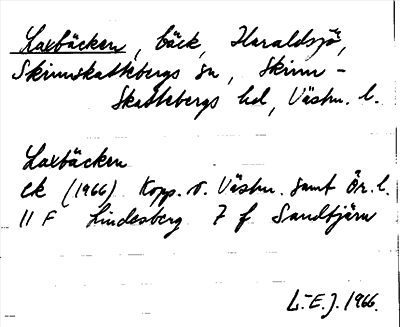 Laxbäcken, bäck, Haraldsjö,
Skinnskattebergs sn, Skinn-
skattebergs hd, Västm. l.
Laxbäcken
ek (1966) Kopp. o. Västm. samt Ör. l.
11 F Lindesberg 7 f Sandtjärn
L-E.J. 1966.